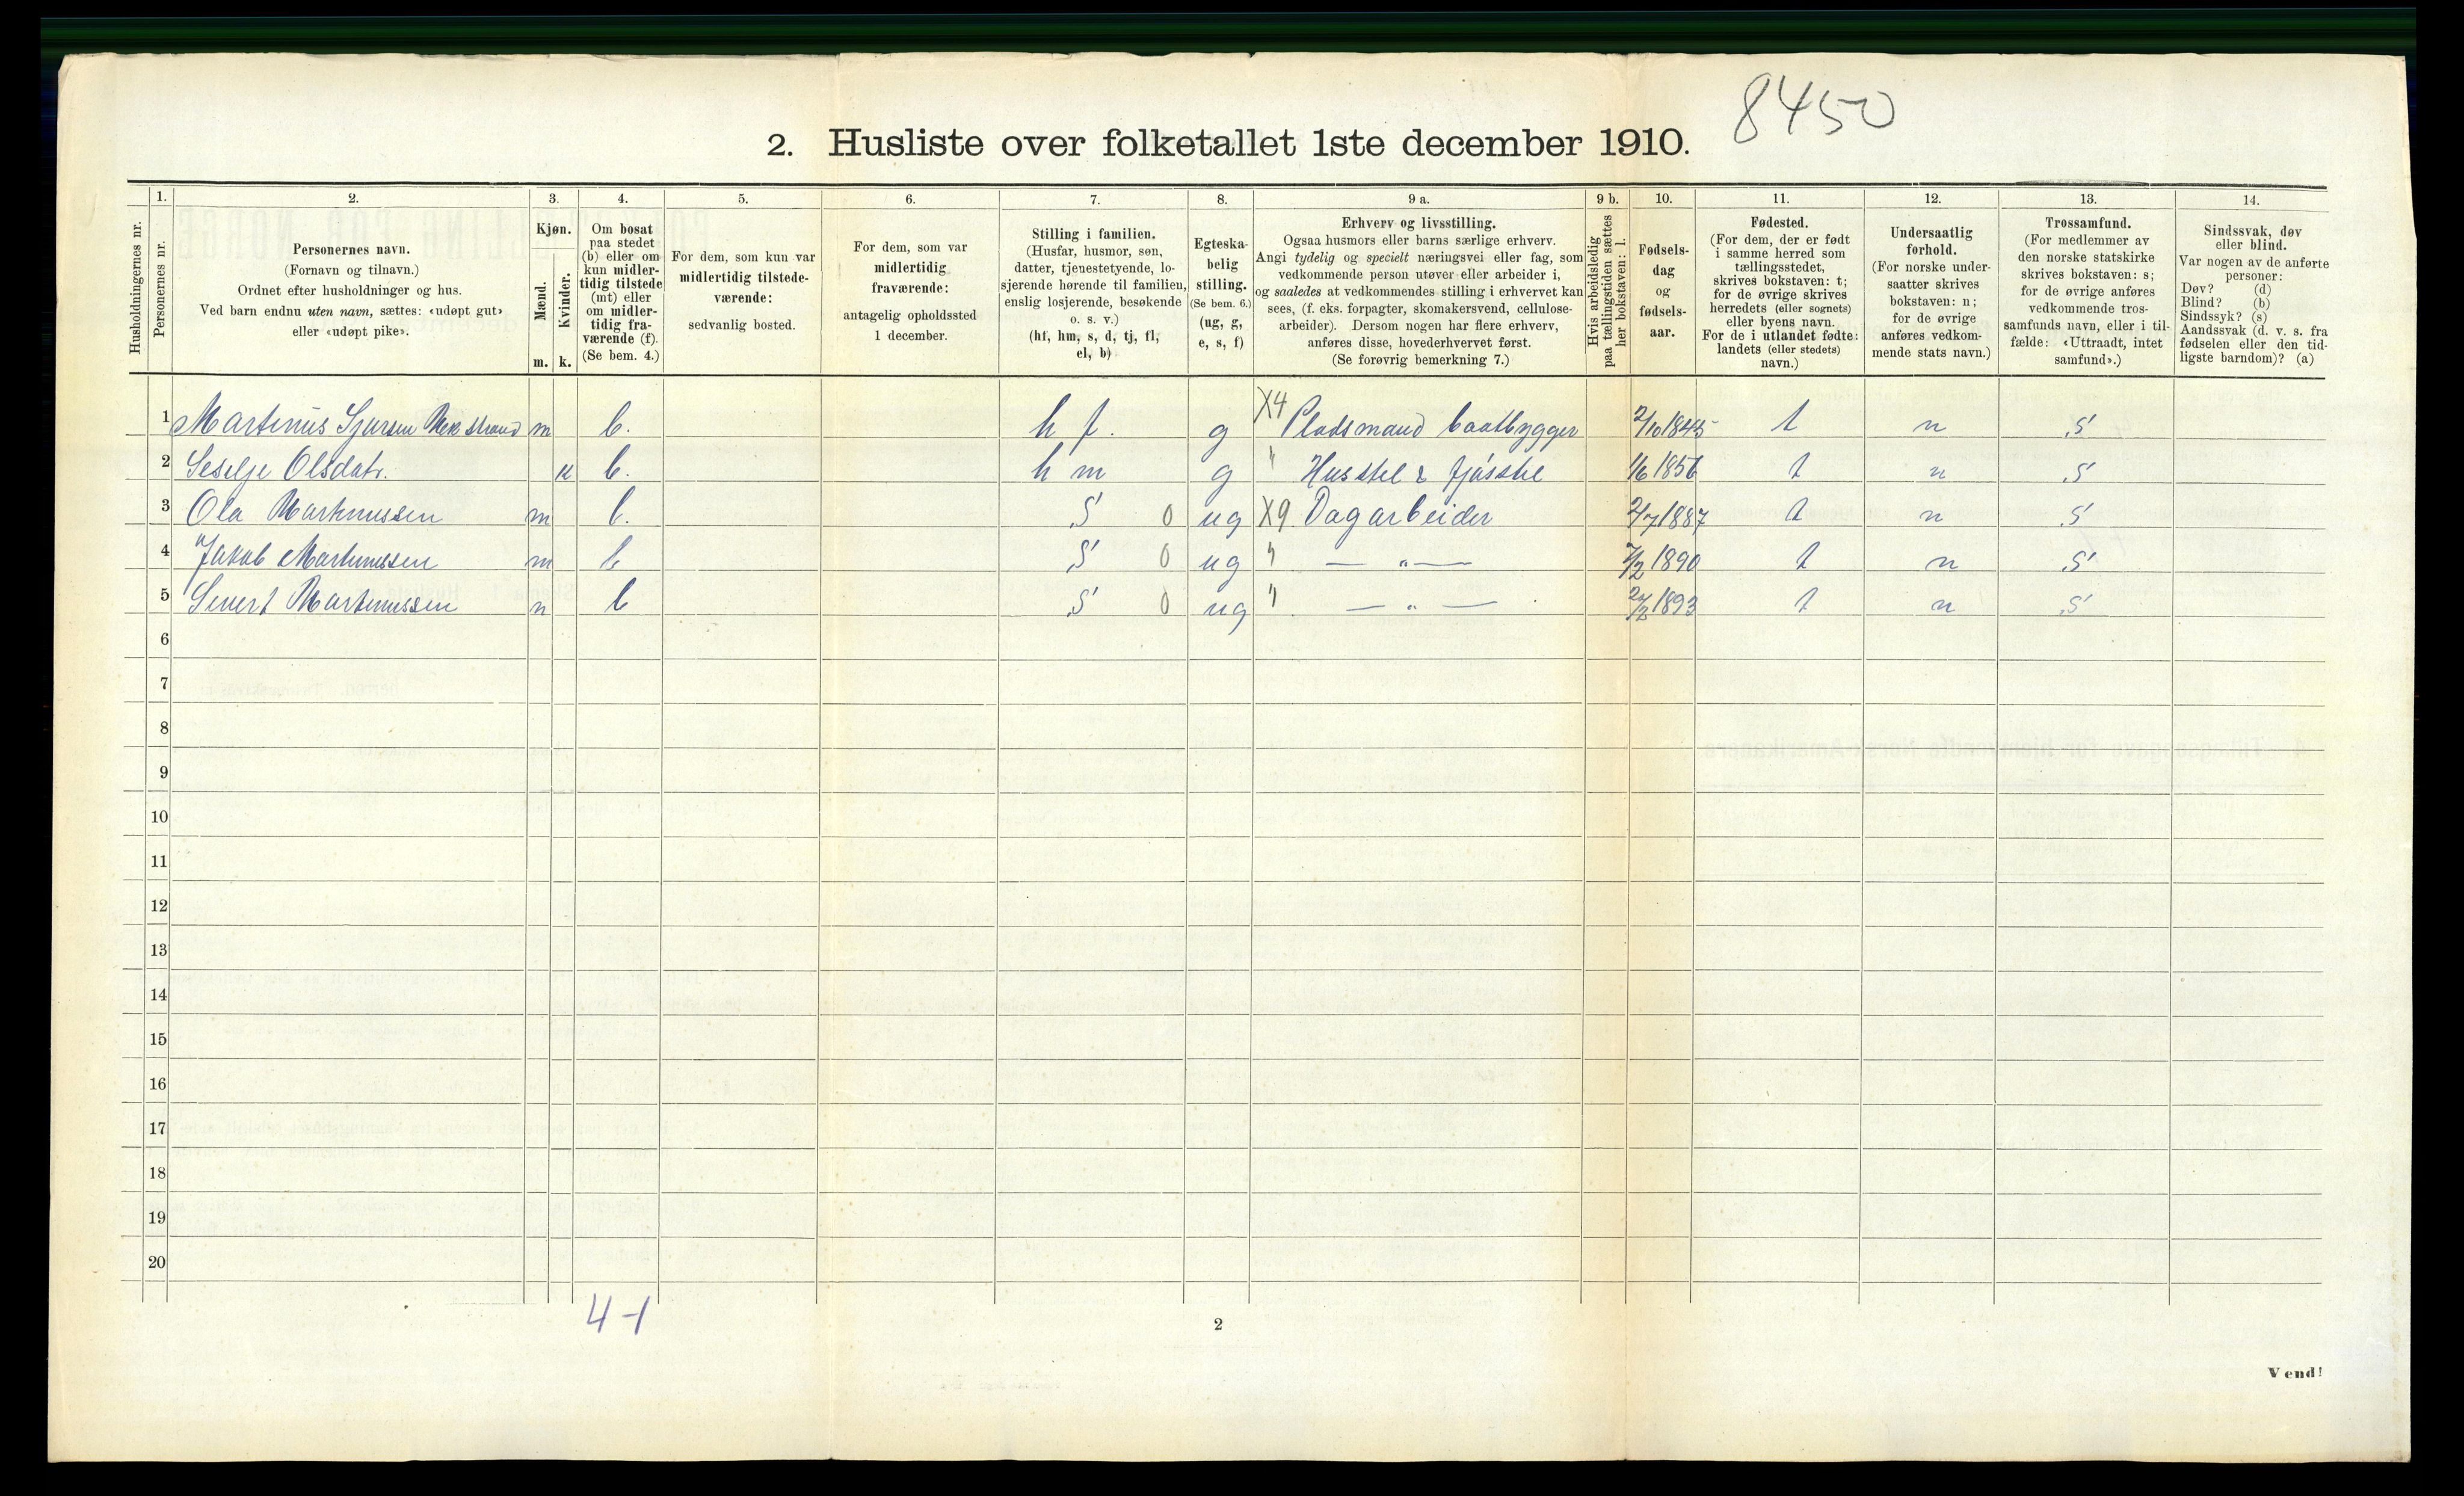 8450
2. Husliste over folketallet 1ste december 1910.
Husholdningernes nr.
1.
Personernes nr.
2.
Personernes navn.
(Fornavn og tilnavn.)
Ordnet efter husholdninger og hus.
Ved barn endnu uten navn, sættes: «udøpt gut»
eller «udøpt pike».
3.
Kjøn.
Mænd.
Kvinder.
m. k.
4.
Om bosat
paa stedet
(b) eller om
kun midler-
tidig tilstede
(mt) eller
om midler-
tidig fra-
værende (f).
(Se bem. 4.)
5.
For dem, som kun var
midlertidig tilstede-
værende:
sedvanlig bosted.
6.
For dem, som var
midlertidig
fraværende:
antagelig opholdssted
1 december.
7.
Stilling i familien.
(Husfar, husmor, søn,
datter, tjenestetyende, lo-
sjerende hørende til familien,
enslig losjerende, besøkende
o. s. v.)
(hf, hm, s, d, tj, fl,
el, b)
8.
Egteska-
belig
stilling.
(Se bem. 6.)
(ug, g,
e, s, f)
9 a.
Erhverv og livsstilling.
Ogsaa husmors eller barns særlige erhverv.
Angi tydelig og specielt næringsvei eller fag, som
vedkommende person utøver eller arbeider i,
og saaledes at vedkommendes stilling i erhvervet kan
sees, (f. eks. forpagter, skomakersvend, cellulose-
arbeider). Dersom nogen har flere erhverv,
anføres disse, hovederhvervet først.
(Se forøvrig bemerkning 7.)
9 b.
Hvis arbeidsledig
paa tællingstiden sættes
her bokstaven: l.
10.
Fødsels-
dag
og
fødsels-
aar.
11.
Fødested.
(For dem, der er født
i samme herred som
tællingsstedet,
skrives bokstaven: t;
for de øvrige skrives
herredets (eller sognets)
eller byens navn.
For de i utlandet fødte:
landets (eller stedets)
navn.)
12.
Undersaatlig
forhold.
(For norske under-
saatter skrives
bokstaven: n;
for de øvrige
anføres vedkom-
mende stats navn.)
13.
Trossamfund.
(For medlemmer av
den norske statskirke
skrives bokstaven: s;
for de øvrige anføres
vedkommende tros-
samfunds navn, eller i til-
fælde: «Uttraadt, intet
samfund».)
14.
Sindssvak, døv
eller blind.
Var nogen av de anførte
personer:
Døv? (d)
Blind? (b)
Sindssyk? (s)
Aandssvak (d. v. s. fra
fødselen eller den tid-
ligste barndom)? (a)
1 Martinus Sjursen m b. h f. g X4 Pladsmand baatbygger 2/10 1845 t n S
2 Seselje Olsdatr. k b. h m g " Husstel & fjösstel 1/6 1856 t n S
3 Ola Martinussen m b. S 0 ug X9 Dagarbeider 2/7 1887 t n S
4 Jakob Martinussen m b S 0 ug " — " — 7/2 1890 t n S
5 Sivert Martinussen m b S 0 ug " — " — 1893 t n S
6
7
8
9
10
11
12
13
14
15
16
17
18
19
20
4-1
2
Vend!